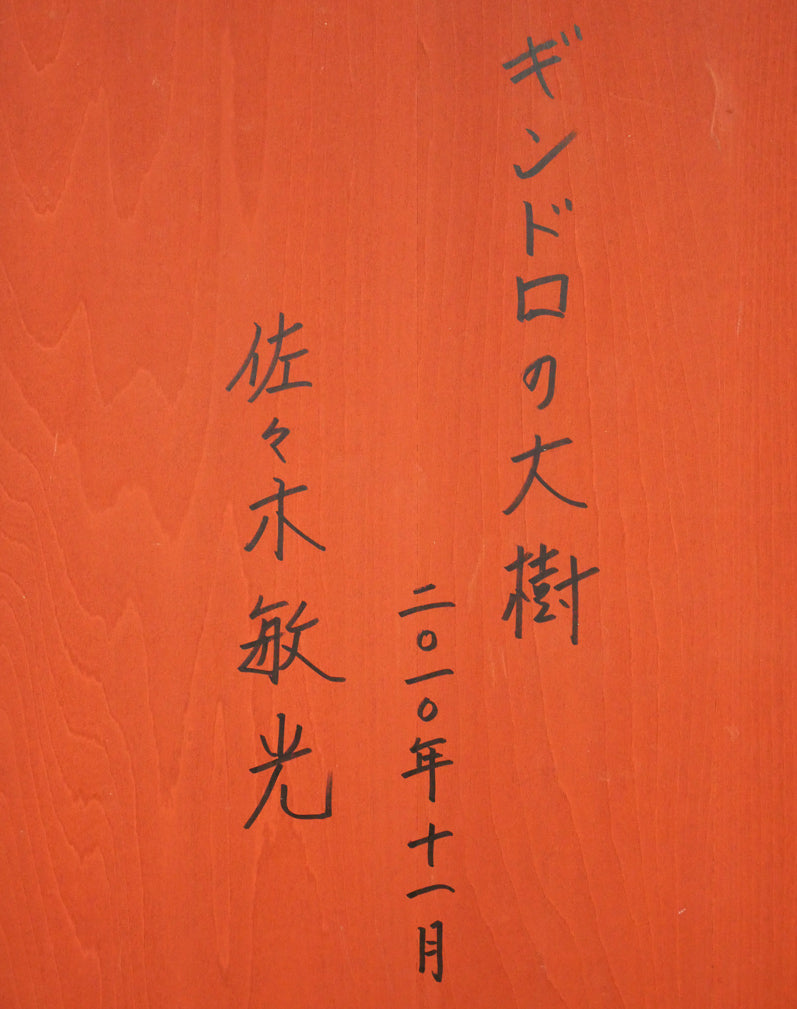 ギンドロの大樹
二〇一〇年十一月
佐々木敏光